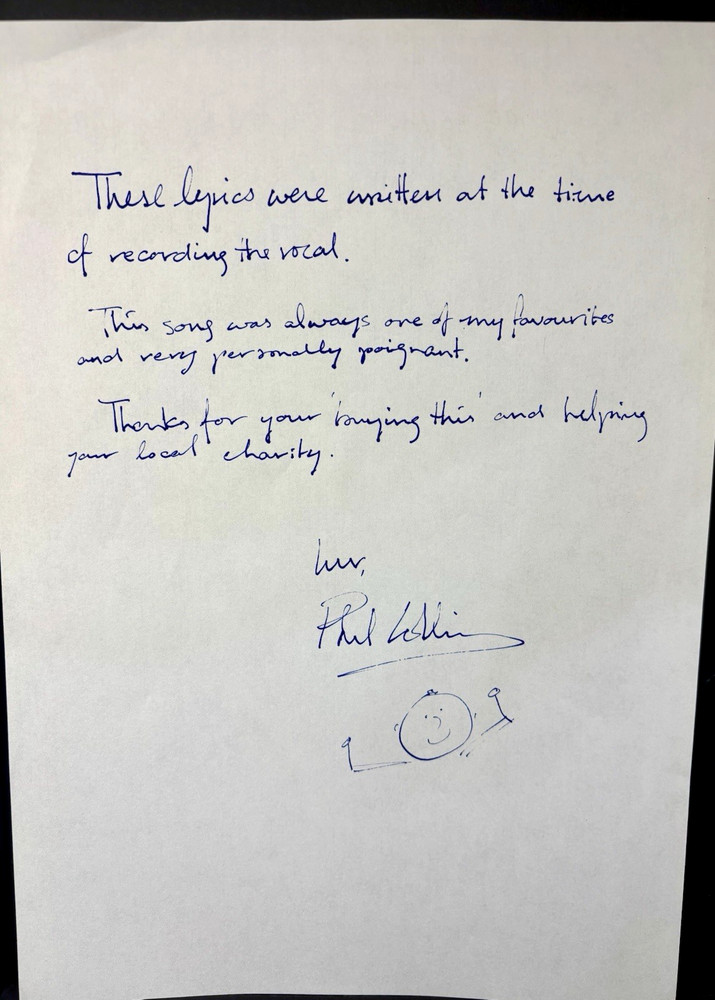 These lyrics were written at the time
of recording the vocal.
This song was always one of my favourites
and very personally poignant.
Thanks for your 'buying this' and helping
your local charity.
luv,
Phil Collins